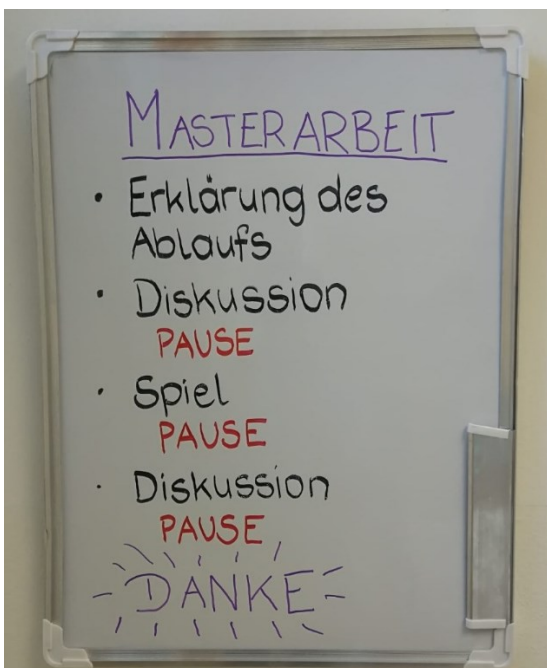 MASTERARBEIT
• Erklärung des
Ablaufs
• Diskussion
PAUSE
• Spiel
PAUSE
• Diskussion
PAUSE
DANKE